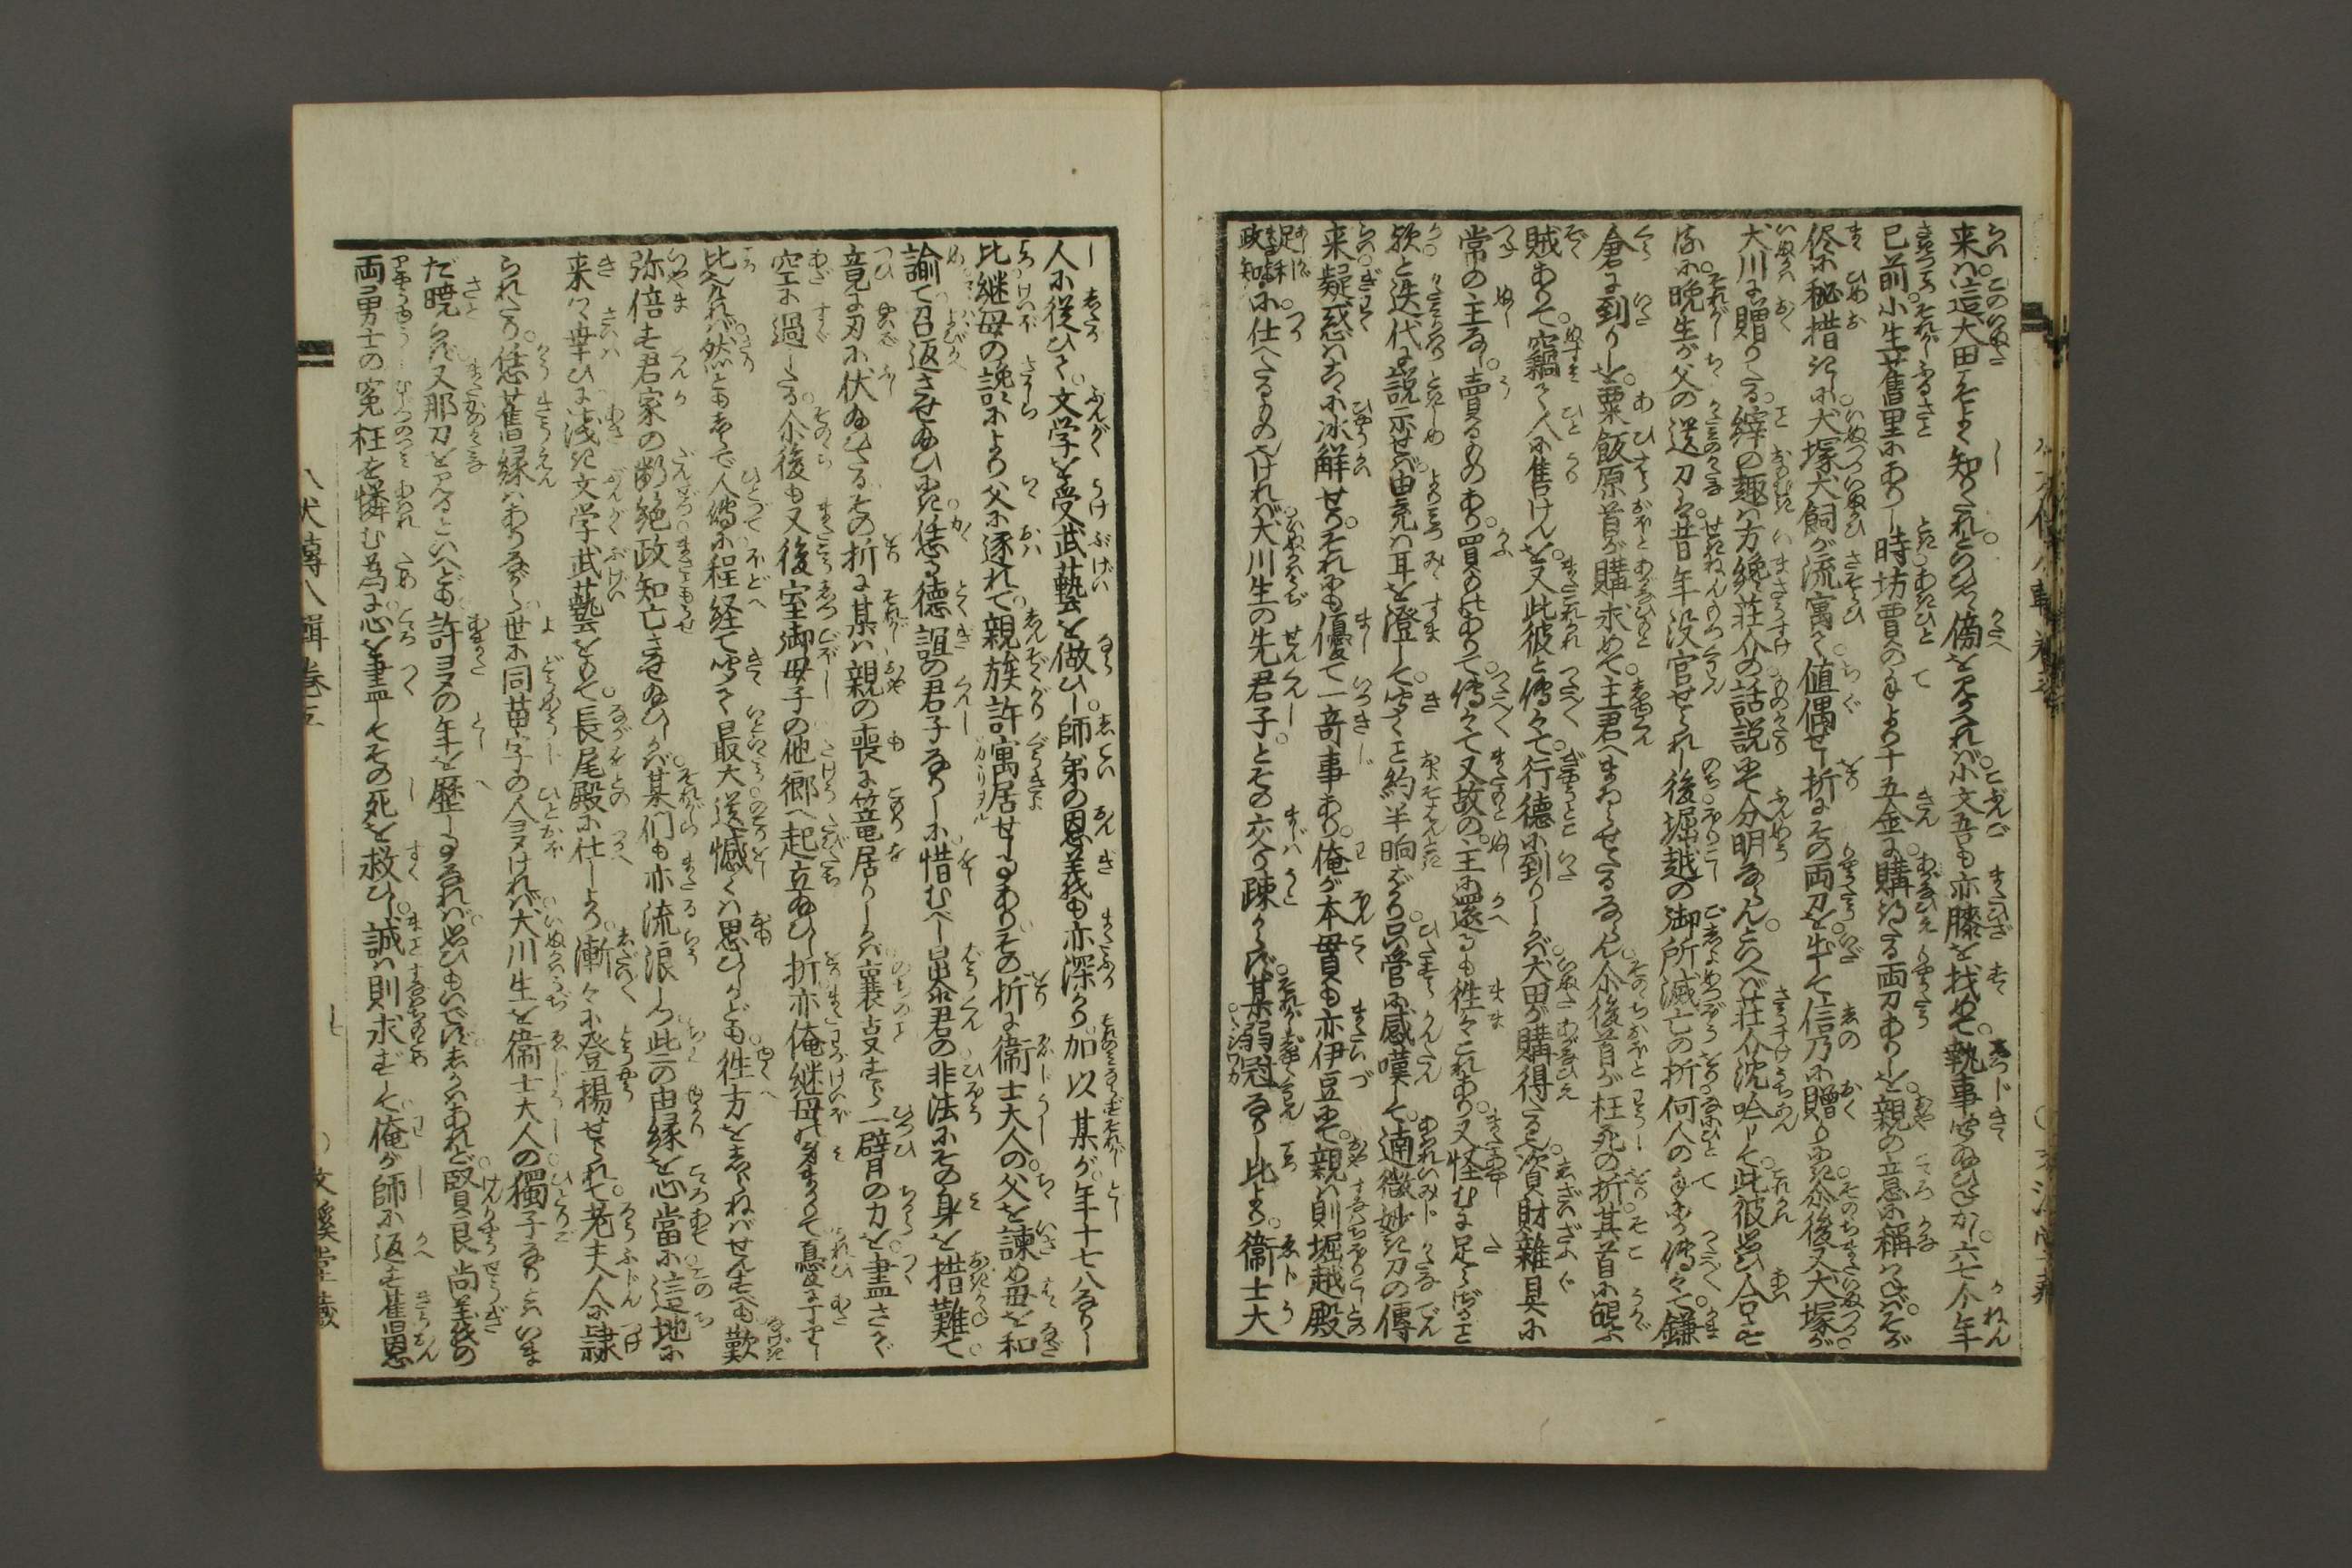 来は這犬田そよく知りたれといひつゝ傍を見かへれば小文吾も亦膝を找めて執事聞給ひさか六七个年
已前小生甘舊里にありし時坊賈のより千五金に購得たる両刀ありしを親の意に稱はざればそが
侭に秘措きしに犬塚犬飼が流寓て値偶せし折にその両刀を出して信乃に贈りにき尓後又犬塚が
犬川に贈りたる縡の趣は方纔荘介の話説にて分明ならんといへば荘介沈吟して此彼思ひ合するに
晩生が父の送刀は昔年没官せられし後堀越の御所滅亡の折何人の手より傳へて鎌
倉に到りしを粟飯原首が購求めて主君へまゐらせたるならん尓後首が枉死の折其首に
賊ありて竊て人に售けんを又此彼と傳へて行徳に到りしかば犬田が購得たる資財雜具に
常の主なし賣るものあり買ふものありて傳へて又故の主に還るも徃々これあり又怪むに足らざること
欤と迭代に説示せば由充は耳を澄して聞くこと約半晌ばかり只管に感嘆して逎微妙き刀の傳
来疑惑は冰解せりそれにも優て一竒事あり俺が本貫も亦伊豆にて親は則堀越殿
足利政知に仕へたるものなければ犬川生の先君子とその交り疎からず某弱冠なりし比より衛士大
人に從ひて文学を受武藝を做ひし師弟の恩義も亦深かり加以某が年十七八なりし
比継母の讒により父に逐れて親族許寓居せしことありその折に衛士大人の父を諫め母を和
諭て召返させ給ひにき恁る徳誼の君子なりしに惜むべし暴君の非法にその身を措難て
竟に刃に伏給ひたるその折に某は親の喪に篭居りしかば一臂の力を盡さで
空に過したる尓後も又後室御母子の他郷へ起立給ひし折亦俺継母身まかりて憂にすぎし
比なれば然ともしらで人傳に程経て聞て最大遺憾くは思ひしかども徃方をしらねばせんすべも歎
弥倍す君家の断絶政知亡させ給ひしかば某们も亦流浪しつ此二の由縁を心當に這地に
来つ幸ひに浅き文学武藝をもて長尾殿に仕しより漸々に登揚せられて老夫人に隷
られたり恁舊縁はありながら世に同苗字の人多ければ犬川生を衛士大人の獨子なりとはいま
だ曉らず又那刀を見るといへども許多の年を歴しことなれば思ひもいでずしかはあれど賢良尚義の
両勇士の寃枉を憐む為に心を盡してその死を救ひし誠は則求ずして俺が師に返す舊恩
八犬傳八輯巻五
文溪堂藏